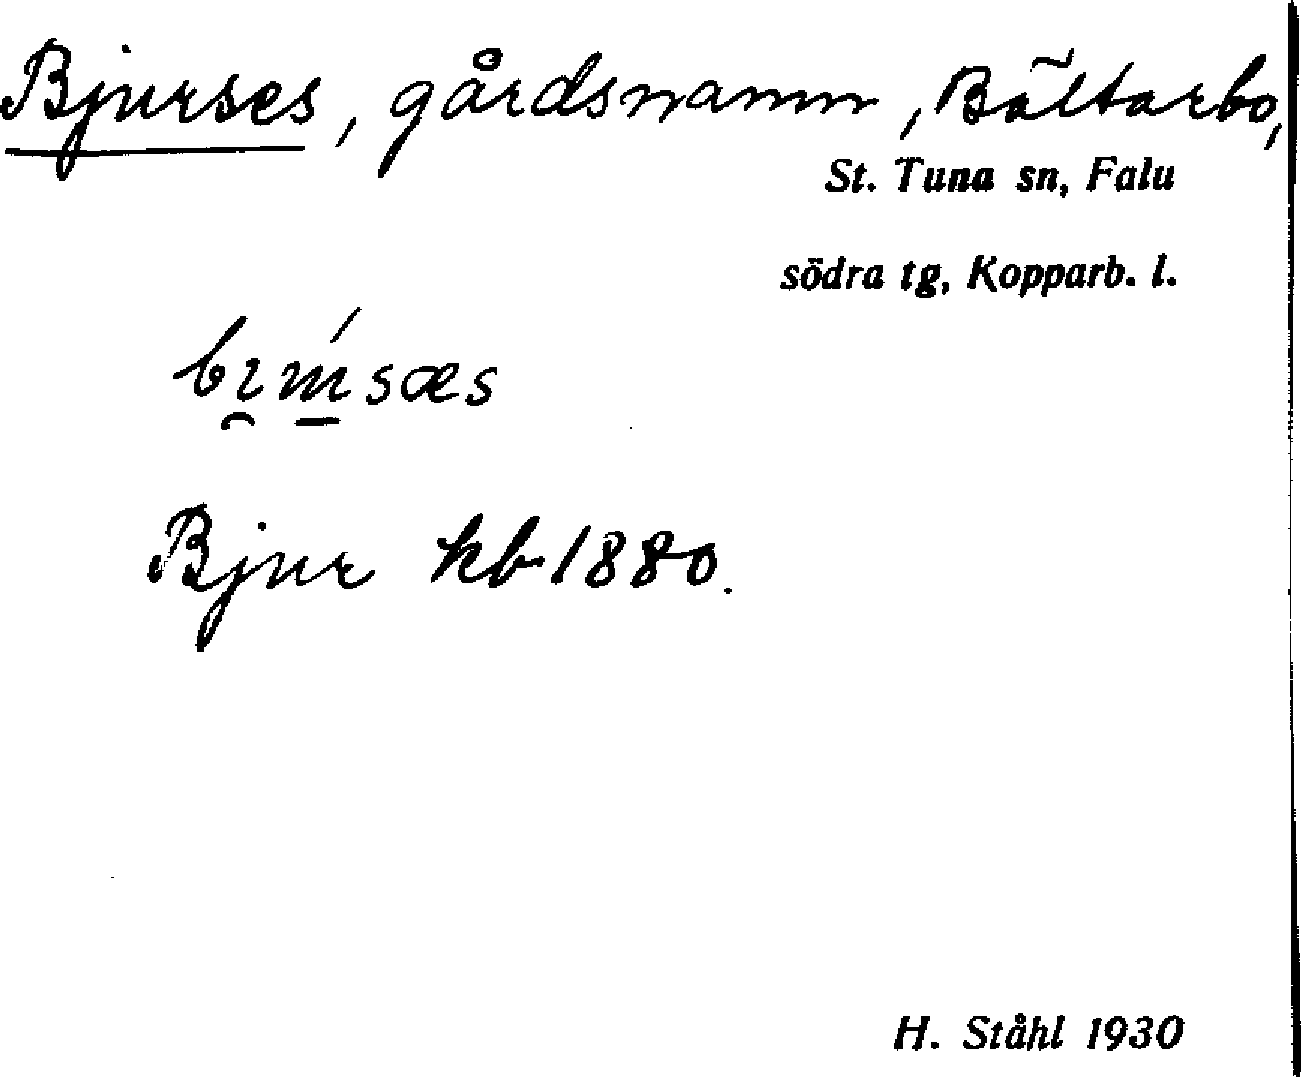 Bjurses, gårdsnamn, Bältarbo,
St. Tuna sn, Falu
södra tg, Kopparb. l.
Bjur kb 1880.
H. Ståhl 1930